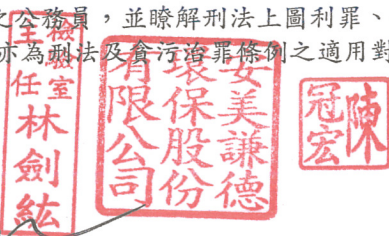 之公務員，並瞭解刑法上圖利罪、
亦為刑法及貪污治罪條例之適用對
檢驗室
主任
林劍紘
安美謙德
環保股份
有限公司
陳
冠宏